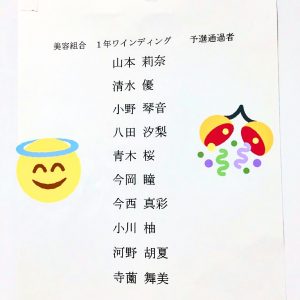 美容組合　１年ワインディング　　予選通過者
山本 莉奈
清水 優
小野 琴音
八田 汐梨
青木 桜
今岡 瞳
今西 真彩
小川 柚
河野 胡夏
寺薗 舞美